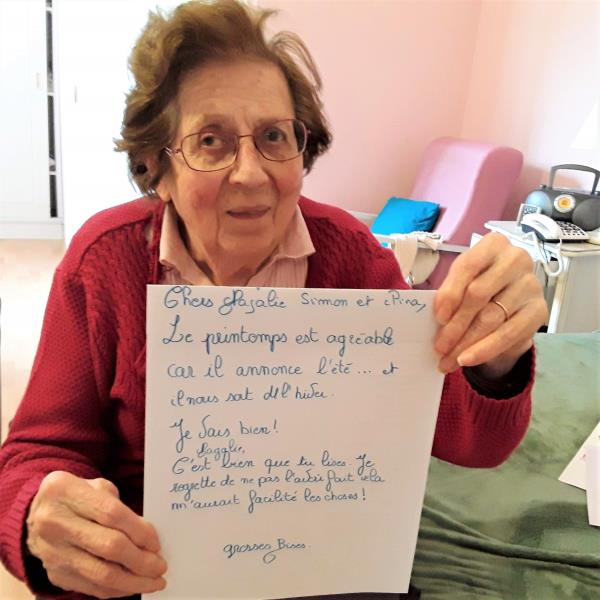 Chers Magalie Simon et
Le peintomps est agréable
car il annonce l'été... et
il nous sort de l'hiver.
Je vais bien!
Magalie,
C'est bien que tu lises. Je
regrette de ne pas l'avoir fait cela
m'aurait facilité les choses!
grosses Bises.